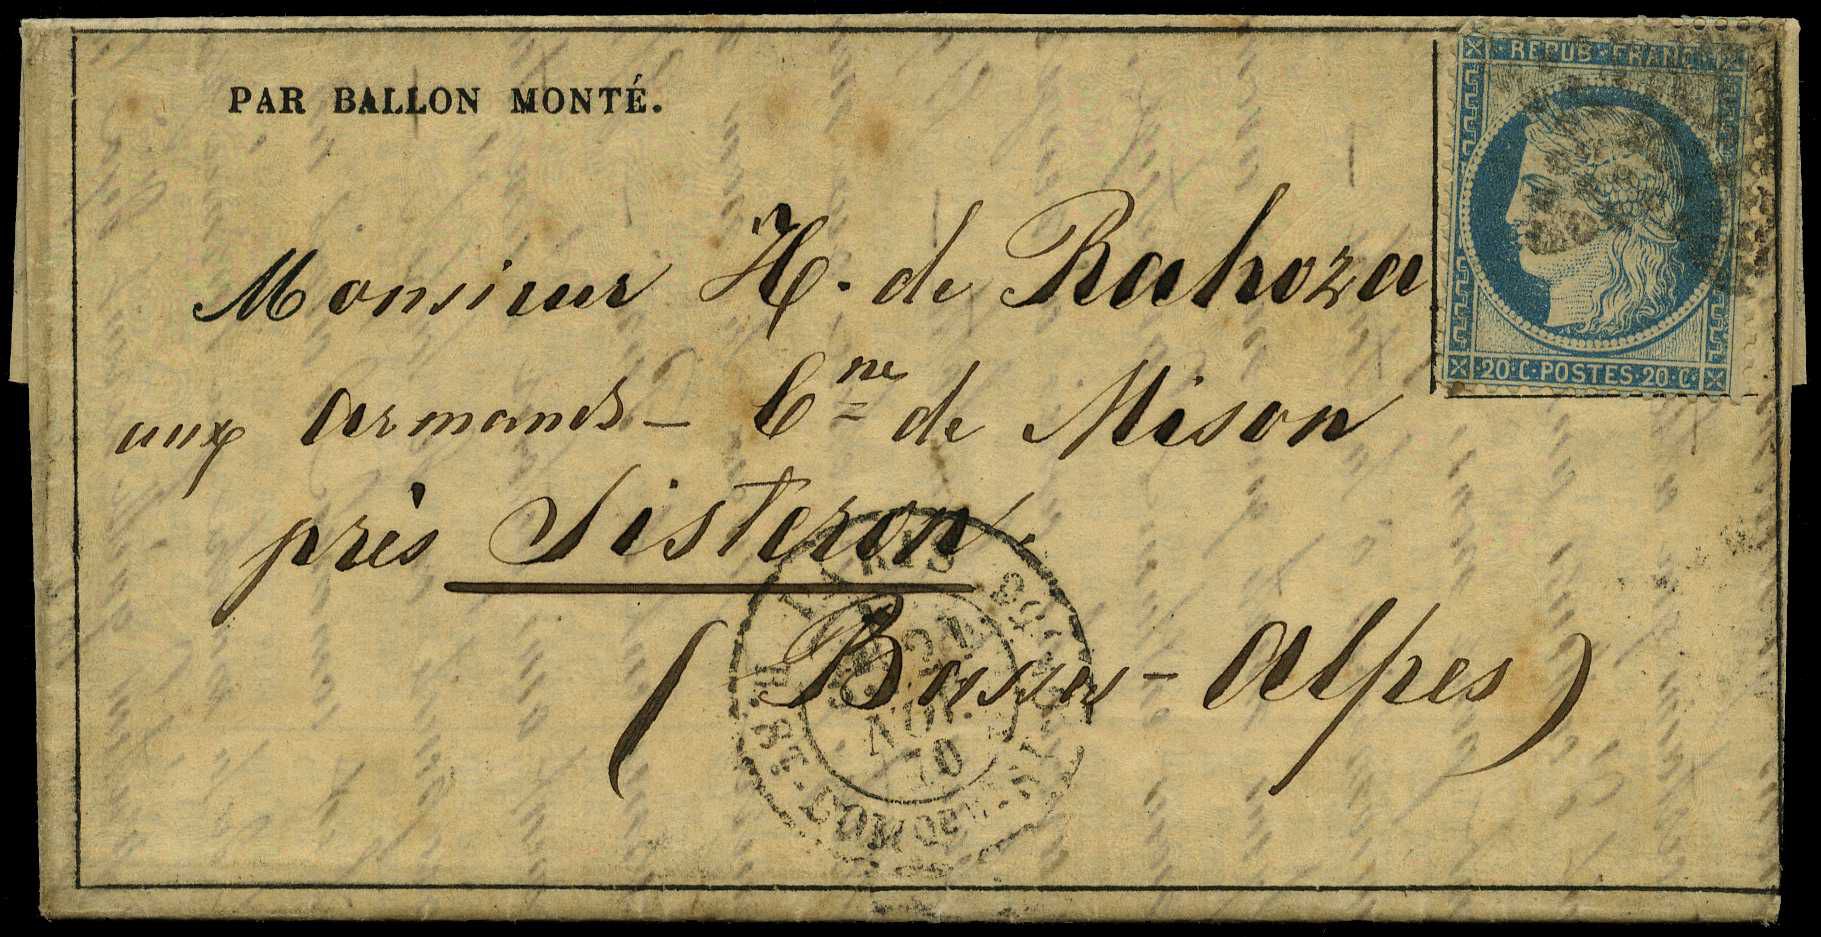 PAR BALLON MONTÉ.
REPUB FRANC
20·C·POSTES·20·C
Monsieur H. de Rahoza
aux Armands – Cne de Mison
près Sisteron.
(Basses-Alpes)
PARIS
NOV.
70